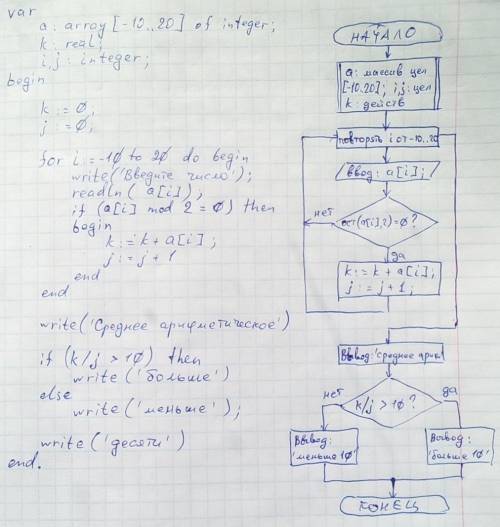 var
a: array [-10..20] of integer;
k: real;
i, j: integer;
begin
k := 0;
j := 0;
for i = -10 to 20 do begin
write('Введите число');
readln( a[i] );
if (a[i] mod 2 = 0) then
begin
k := k + a[i];
j := j + 1
end
end
write('Среднее арифметическое')
if (k/j > 10) then
write ('больше')
else
write ('меньше');
write ('десяти')
end.
НАЧАЛО
a: массив цел
[-10..20]; i,j: цел
k: действ
повторять i от -10..20
ввод: a[i];
ост(a[i],2)=0?
нет
да
k := k + a[i];
j := j + 1;
Вывод: 'среднее арифм
k/j > 10?
нет
да
Вывод:
'меньше 10'
Вывод:
'больше 10'
КОНЕЦ